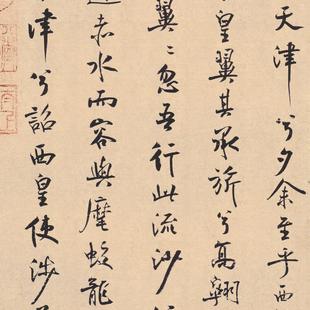 天津兮夕余至乎西
皇翼其承旂兮高翱
翼〻忽吾行此流沙
遵赤水而容與麾蛟龍
津兮詔西皇使涉